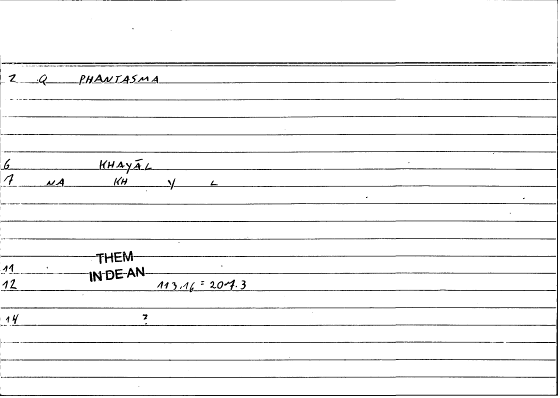 2 Q PHANTASMA
6 KHAYĀL
7 NA KH Y L
THEM
11 IN DE AN
12 113.16 = 207.3
14 ?